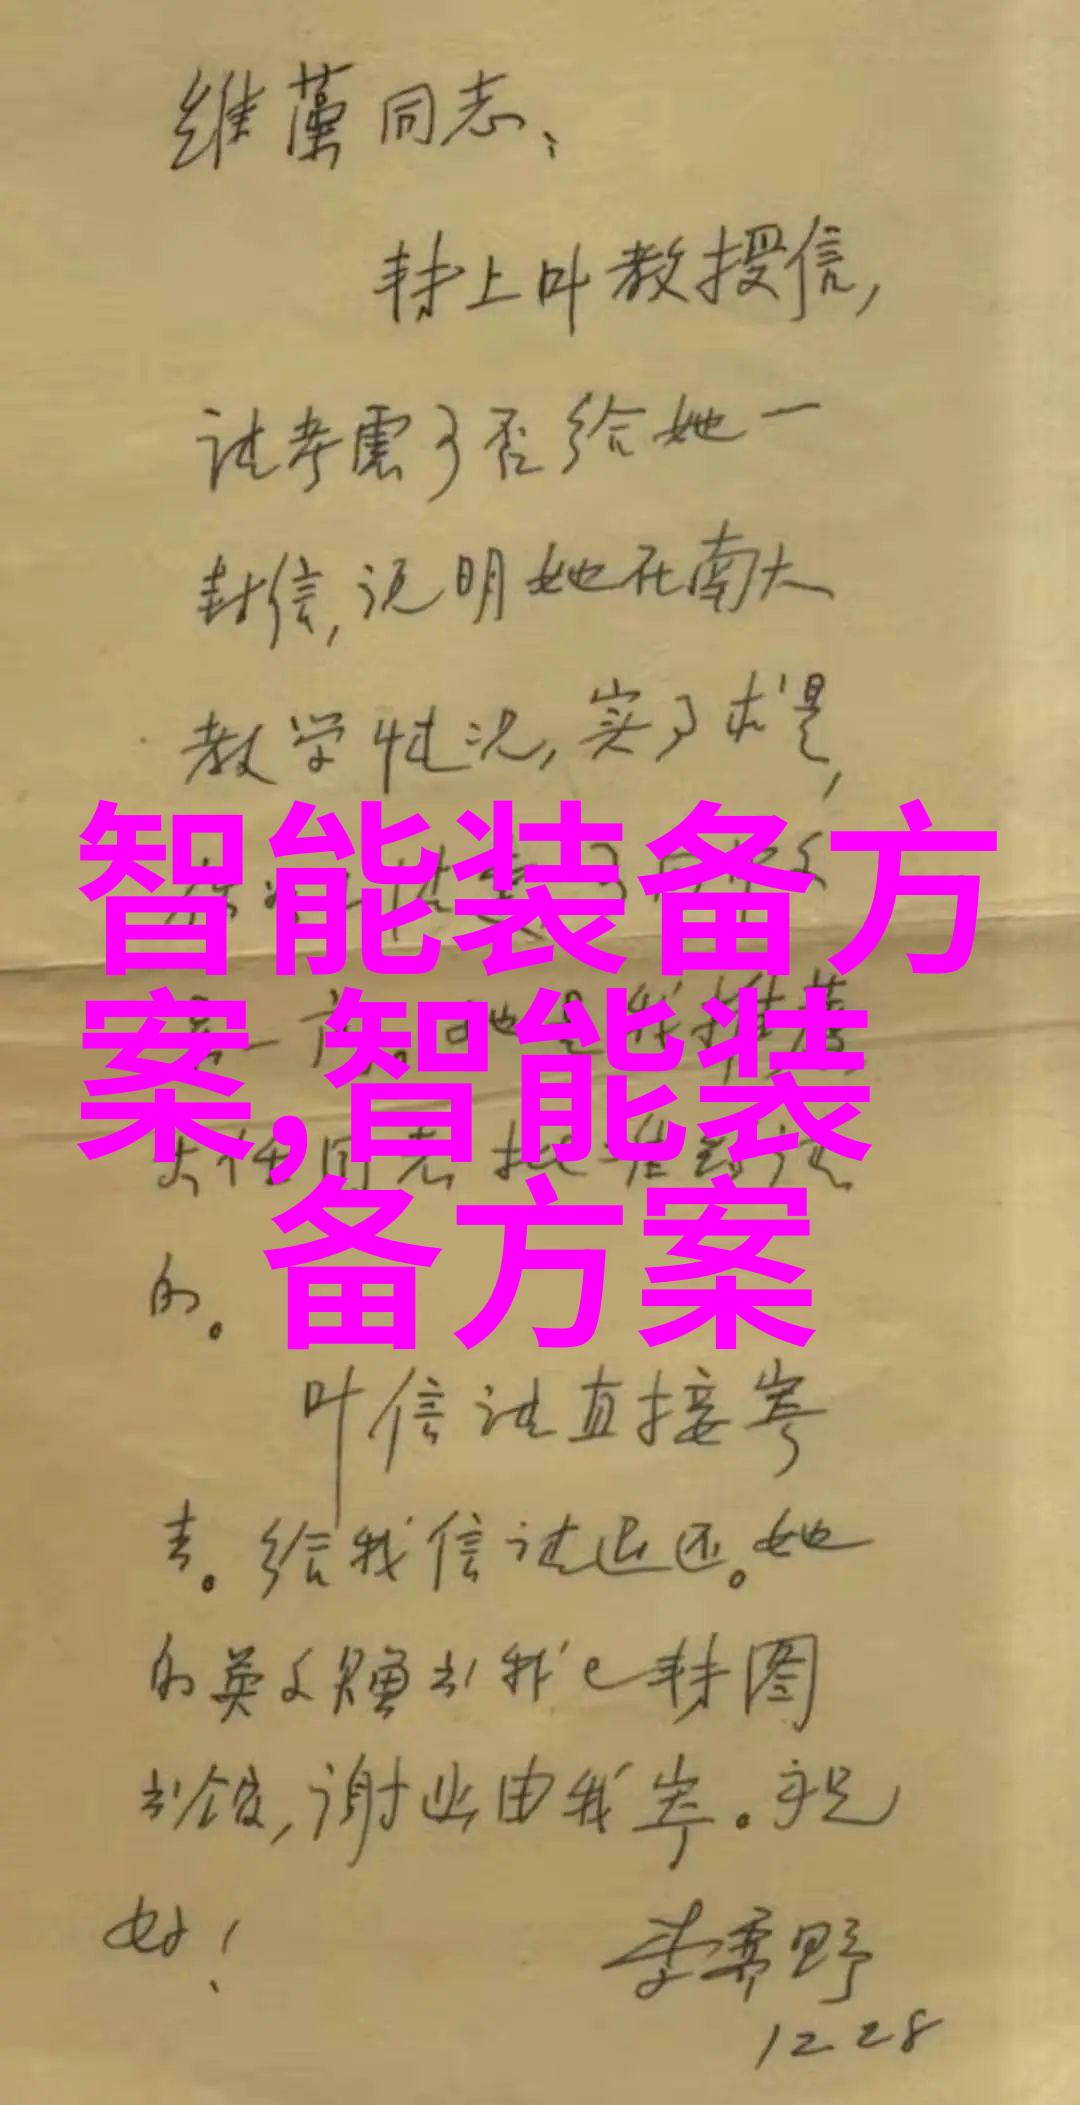 维藻同志：
转上叶教授信，
请考虑可否给她一
封信，说明她在南大
教学情况，实事求是，
她是我推荐
大任同志批准
的。
叶信请直接寄
去。给我信请退还。她
的英文赠书我已转图
书馆，谢也由我寄。祝
好！
李霁野
12 28
智能装备方
案,智能装
备方案